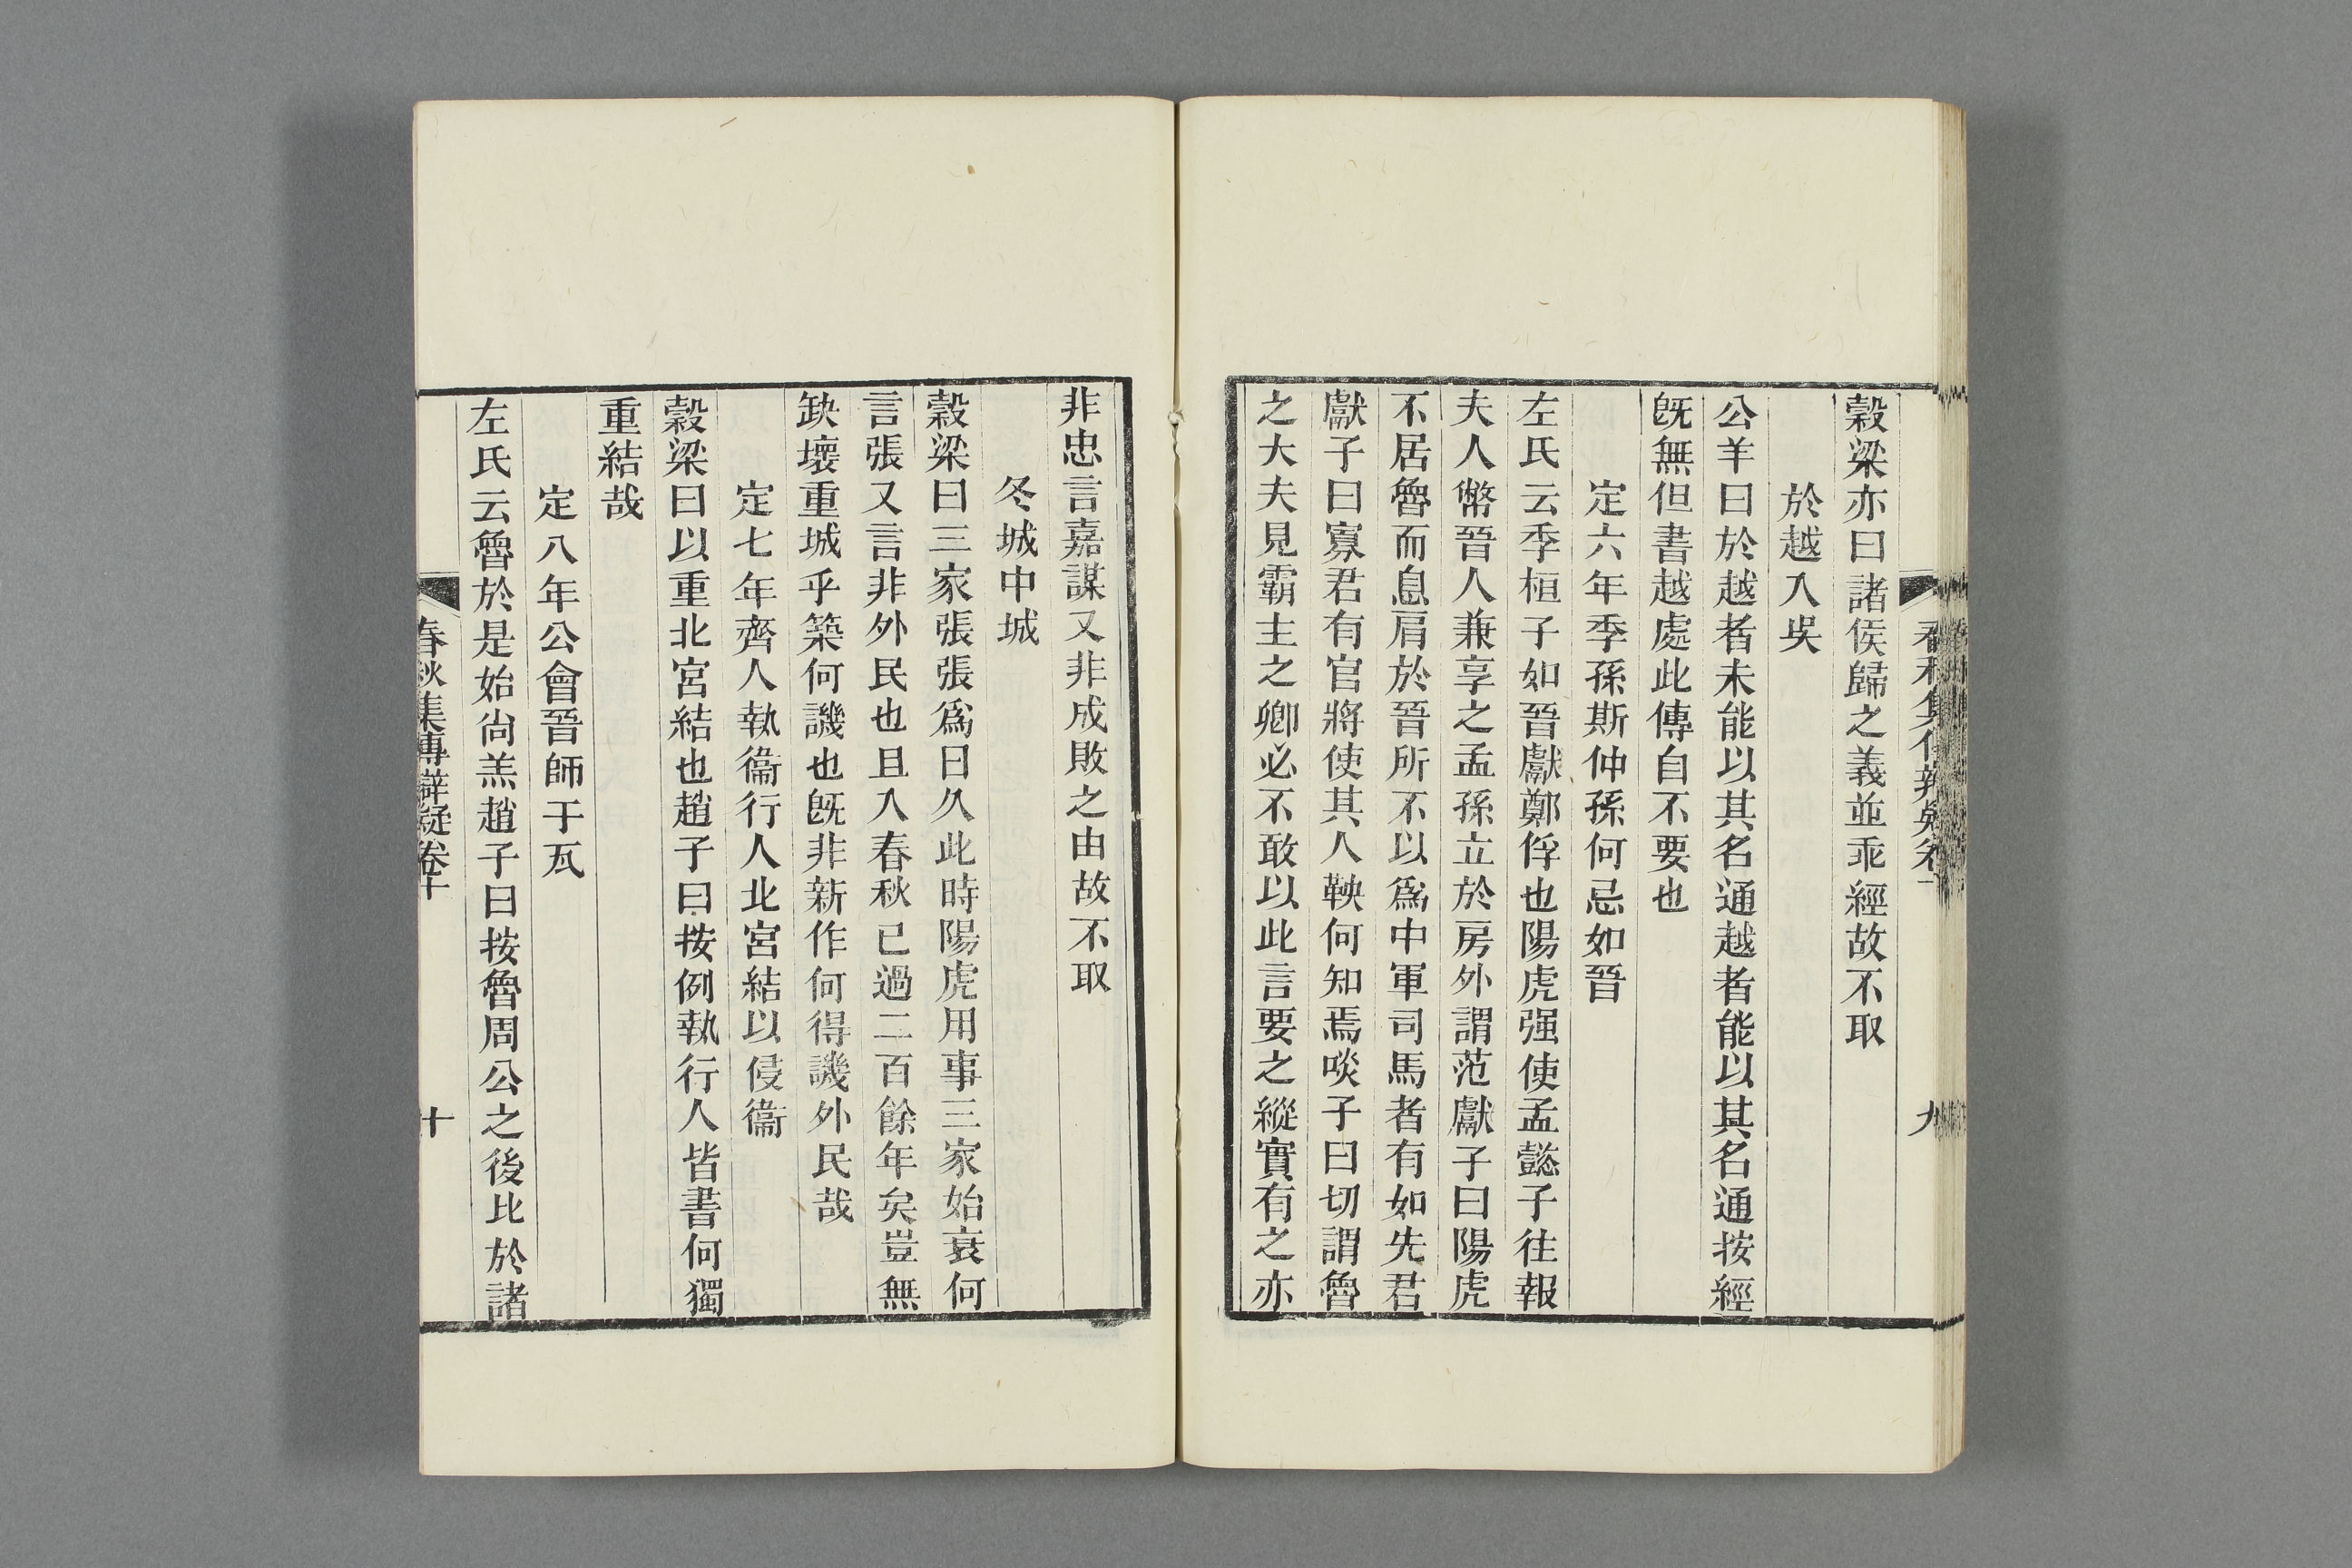 穀梁亦曰諸侯歸之義並乖經故不取
於越入吳
公羊曰於越者未能以其名通越者能以其名通按經
旣無但書越處此傳自不要也
定六年季孫斯仲孫何忌如晉
左氏云季桓子如晉獻鄭俘也陽虎强使孟懿子往報
夫人幣晉人兼享之孟孫立於房外謂范獻子曰陽虎
不居魯而息肩於晉所不以爲中軍司馬者有如先君
獻子曰寡君有官將使其人鞅何知焉啖子曰切謂魯
之大夫見霸主之卿必不敢以此言要之縱實有之亦
九
非忠言嘉謀又非成敗之由故不取
冬城中城
穀梁曰三家張張爲日久此時陽虎用事三家始衰何
言張又言非外民也且入春秋已過二百餘年矣豈無
缺壞重城乎築何譏也旣非新作何得譏外民哉
定七年齊人執衞行人北宮結以侵衞
穀梁曰以重北宮結也趙子曰按例執行人皆書何獨
重結哉
定八年公會晉師于瓦
左氏云魯於是始尙羔趙子曰按魯周公之後比於諸
春秋集傳辯疑卷十
十